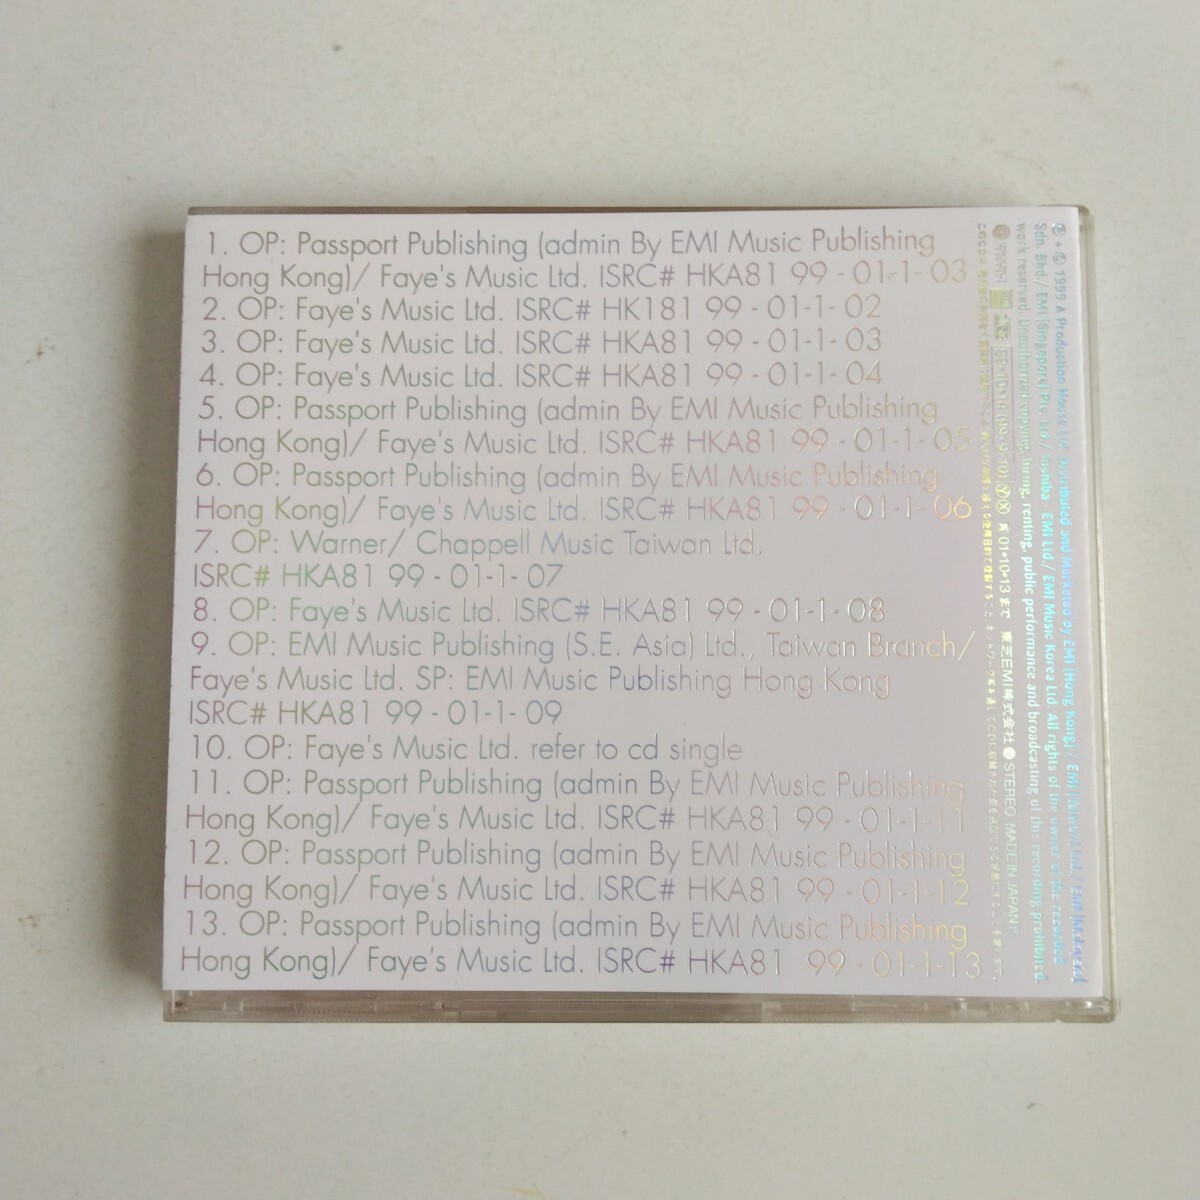 1. OP: Passport Publishing (admin By EMI Music Publishing
Hong Kong)/ Faye's Music Ltd. ISRC# HKA81 99 - 01-1- 03
2. OP: Faye's Music Ltd. ISRC# HK181 99 - 01-1- 02
3. OP: Faye's Music Ltd. ISRC# HKA81 99 - 01-1- 03
4. OP: Faye's Music Ltd. ISRC# HKA81 99 - 01-1- 04
5. OP: Passport Publishing (admin By EMI Music Publishing
Hong Kong)/ Faye's Music Ltd. ISRC# HKA81 99 - 01-1- 05
6. OP: Passport Publishing (admin By EMI Music Publishing
Hong Kong)/ Faye's Music Ltd. ISRC# HKA81 99 - 01-1- 06
7. OP: Warner/ Chappell Music Taiwan Ltd.
ISRC# HKA81 99 - 01-1- 07
8. OP: Faye's Music Ltd. ISRC# HKA81 99 - 01-1- 08
9. OP: EMI Music Publishing (S.E. Asia) Ltd., Taiwan Branch/
Faye's Music Ltd. SP: EMI Music Publishing Hong Kong
ISRC# HKA81 99 - 01-1- 09
10. OP: Faye's Music Ltd. refer to cd single
11. OP: Passport Publishing (admin By EMI Music Publishing
Hong Kong)/ Faye's Music Ltd. ISRC# HKA81 99 - 01-1-11
12. OP: Passport Publishing (admin By EMI Music Publishing
Hong Kong)/ Faye's Music Ltd. ISRC# HKA81 99 - 01-1-12
13. OP: Passport Publishing (admin By EMI Music Publishing
Hong Kong)/ Faye's Music Ltd. ISRC# HKA81 99 - 01-1-13
℗ + © 1999 A Production House Ltd. Distributed and Marketed by EMI (Hong Kong) / EMI
Sdn. Bhd./ EMI (Singapore) Pte. Ltd./ Toshiba - EMI Ltd./ EMI Music Korea Ltd. All rights of the owner of the recorded
work reserved. Unauthorized copying, hiring, renting, public performance and broadcasting of this recording prohibited.
(99•9•10) Ⓨ Ⓧ 再 01•10•13 まで 東芝EMI株式会社 ● STEREO MADE IN JAPAN